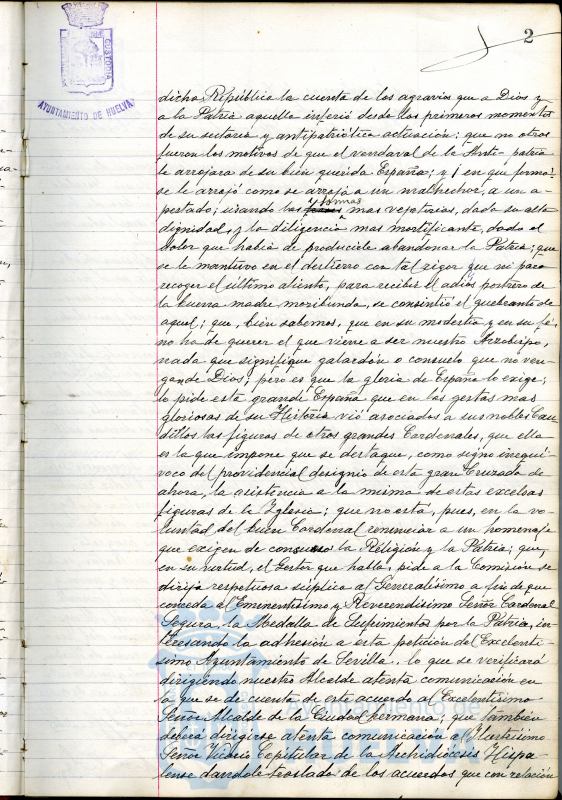 2
AYUNTAMIENTO DE HUELVA
dicha República la cuenta de los agravios que a Dios y
a la Patria aquella infirió desde los primeros momentos
de su sectaria y antipatriótica actuación; que no otros
fueron los motivos de que el vendaval de la Anti-patria
le arrojara de su bien querida España; y ¡en que forma!
se le arrojó como se arroja a un malhechor, a un a-
pestado; usando las formas mas vejatorias, dada su alta
dignidad, y la diligencia mas mortificante, dado el
dolor que habia de producirle abandonar la Patria; que
se le mantuvo en el destierro con tal rigor que ni para
recoger el último aliento, para recibir el adiós postrero de
la buena madre moribunda, se consintió el quebranto de
aquel; que, bien sabemos, que en su modestia y en su fé,
no ha de querer el que viene a ser nuestro Arzobispo,
nada que signifique galardón o consuelo que no ven-
ga de Dios; pero es que la gloria de España lo exige;
lo pide esta grande España que en las gestas mas
gloriosas de su Historia vió asociados a sus nobles Cau-
dillos las figuras de otros grandes Cardenales, que ella
es la que impone que se destaque, como signo inequí-
voco del providencial designio de esta gran Cruzada de
ahora, la asistencia a la misma de estas excelsas
figuras de la Yglesia; que no está, pues, en la vo-
luntad del buen Cardenal renunciar a un homenaje
que exigen de consuno la Religión y la Patria; que,
en su virtud, el Gestor que habla, pide a la Comisión se
dirija respetuosa súplica al Generalísimo a fin de que
conceda al Eminentísimo y Reverendísimo Señor Cardenal
Segura, la Medalla de Sufrimientos por la Patria, in-
teresando la adhesión a esta petición del Excelentí-
simo Ayuntamiento de Sevilla, lo que se verificará
dirigiendo nuestro Alcalde atenta comunicación en
la que se dé cuenta de este acuerdo al Excelentísimo
Señor Alcalde de la Ciudad hermana; que tambien
deberá dirigirse atenta comunicación al Ylustrísimo
Señor Vicario Capitular de la Archidiócesis Hispa-
lense dandole traslado de los acuerdos que con relación
Ayuntamiento de
HUELVA